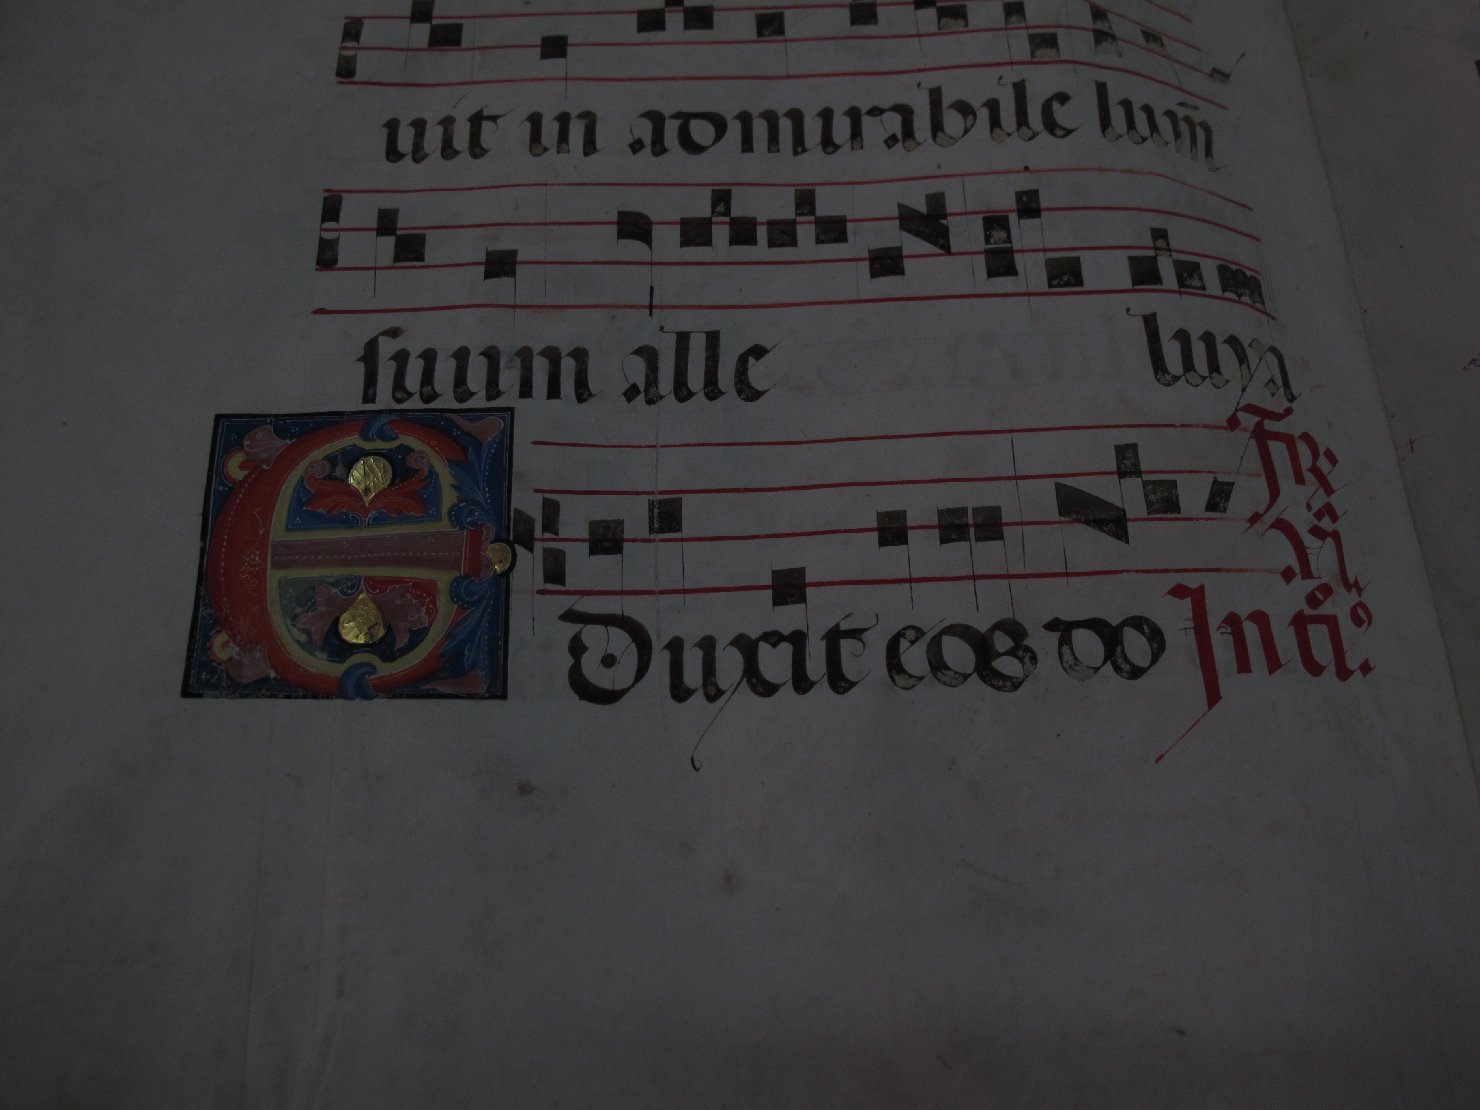 uit in admirabile lum̄
suum alle luya
Eduxit eos do
FR
VI
Int°i°